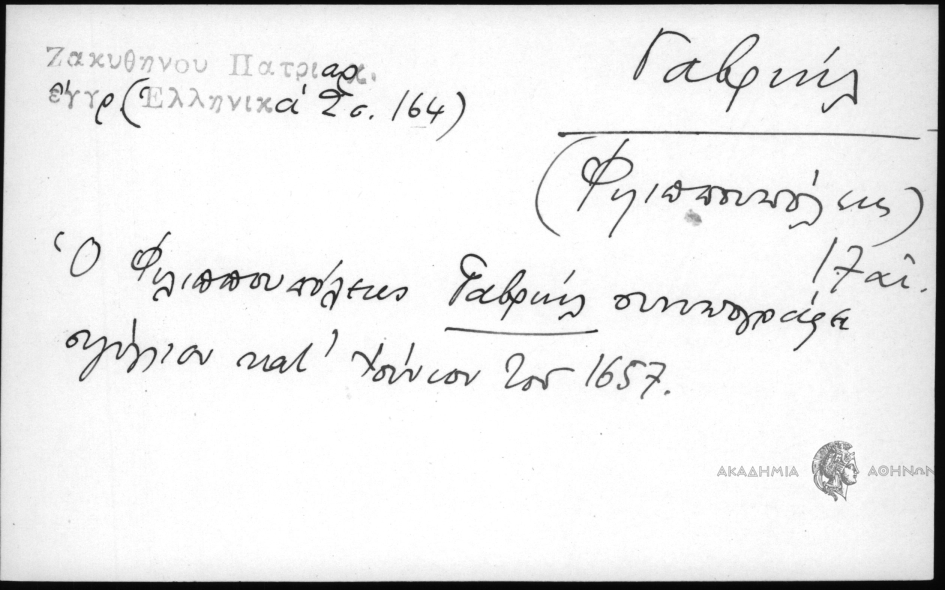 Ζακυθηνου Πατριαρχ.
ἔγγρ (Ἑλληνικά 2 σ. 164)
Γαβριήλ
(Φιλιππουπόλεως)
17 αἰ.
Ὁ Φιλιππουπόλεως Γαβριήλ συνυπογράφει
σιγίλλιον κατ' Ἰούνιον τοῦ 1657.
ΑΚΑΔΗΜΙΑ ΑΘΗΝΩΝ